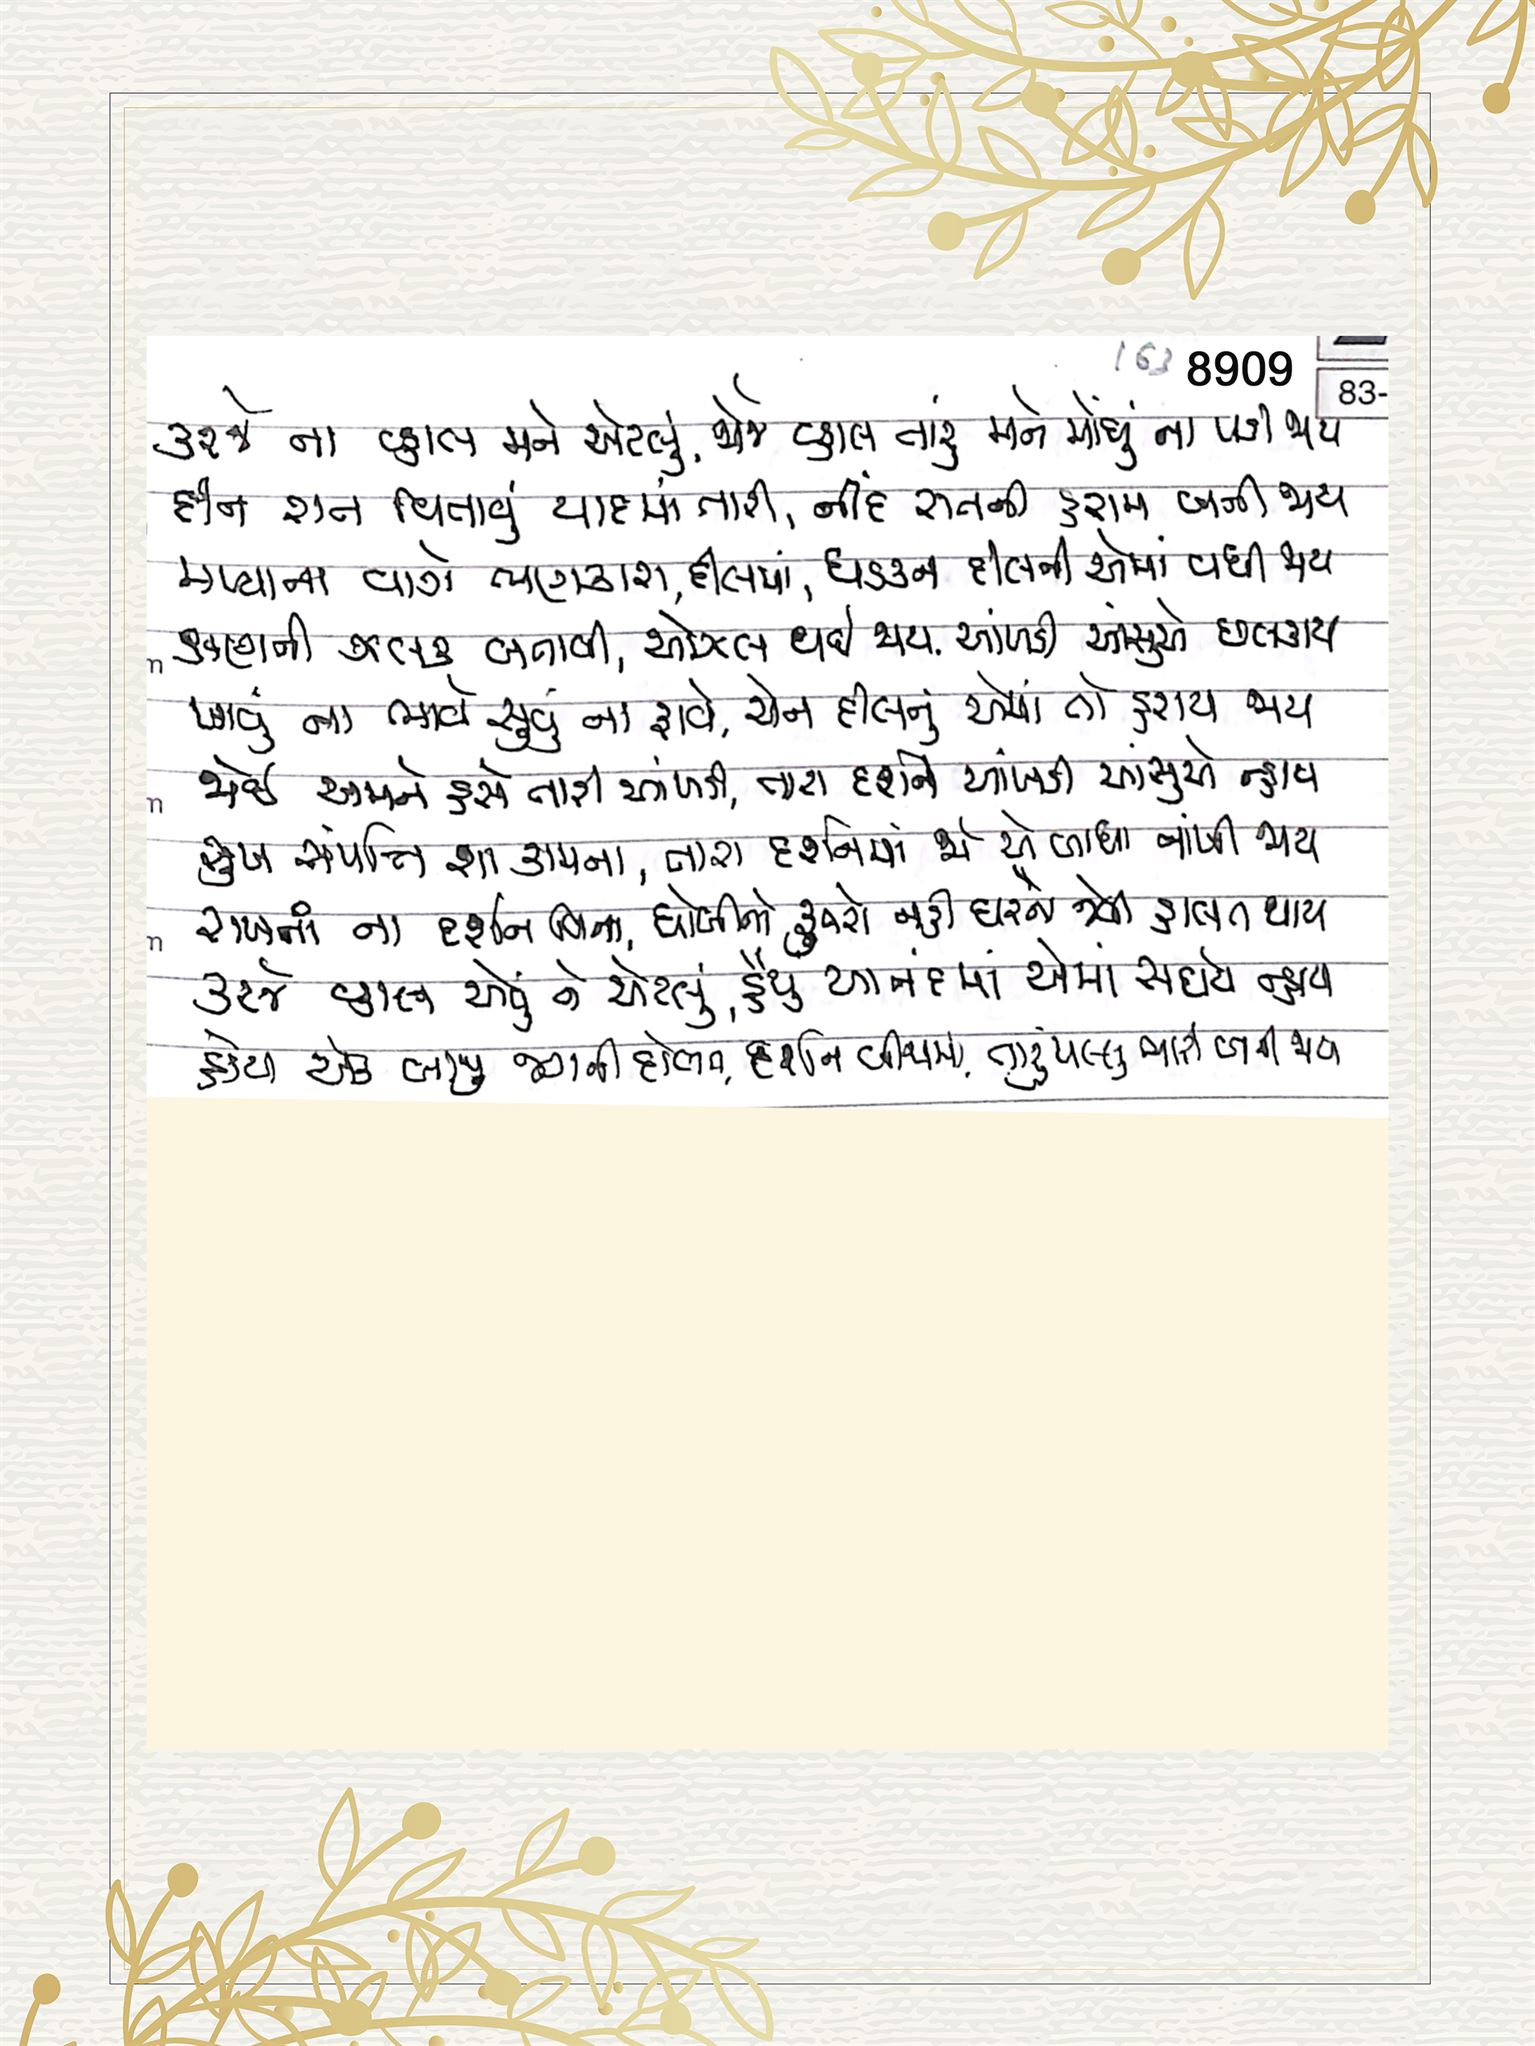 163 8909
83-
કરજે ના વ્હાલ મને એટલું, જોજે વ્હાલ તારું મને મોંઘું ના પડી જાય
દીન રાત વિતાવું યાદમાં તારી, નીંદ રાતની હરામ બની જાય
માયાના વાગે ભણકારા, દીલમાં, ધડકન દીલની એમાં વધી જાય
ક્ષણની ઝલક બતાવી, ઓઝલ થઈ જાય. આંખડી આંસુએ છલકાય
ખાવું ના ભાવે સુવું ના ફાવે, ચેન દીલનું એમાં તો હરાય જાય
જોઈ અમને હસે તારી આંખડી, તારા દર્શને આંખડી આંસુએ ન્હાય
સુખ સંપત્તિ શા કામના, તારા દર્શનમાં જો એ બાધા નાંખી જાય
રાખતાં ના દર્શન વિના, ધોબીનો કુતરો નહી ઘરનો જેવી હાલત થાય
કરજે વ્હાલ એવું ને એટલું, હૈયું આનંદમાં એમાં સદાયે ન્હાય
હૈયા એક બાજુ જગની દોલત, દર્શન બીજામાં, તારું પલ્લુ ભારે બની જાય